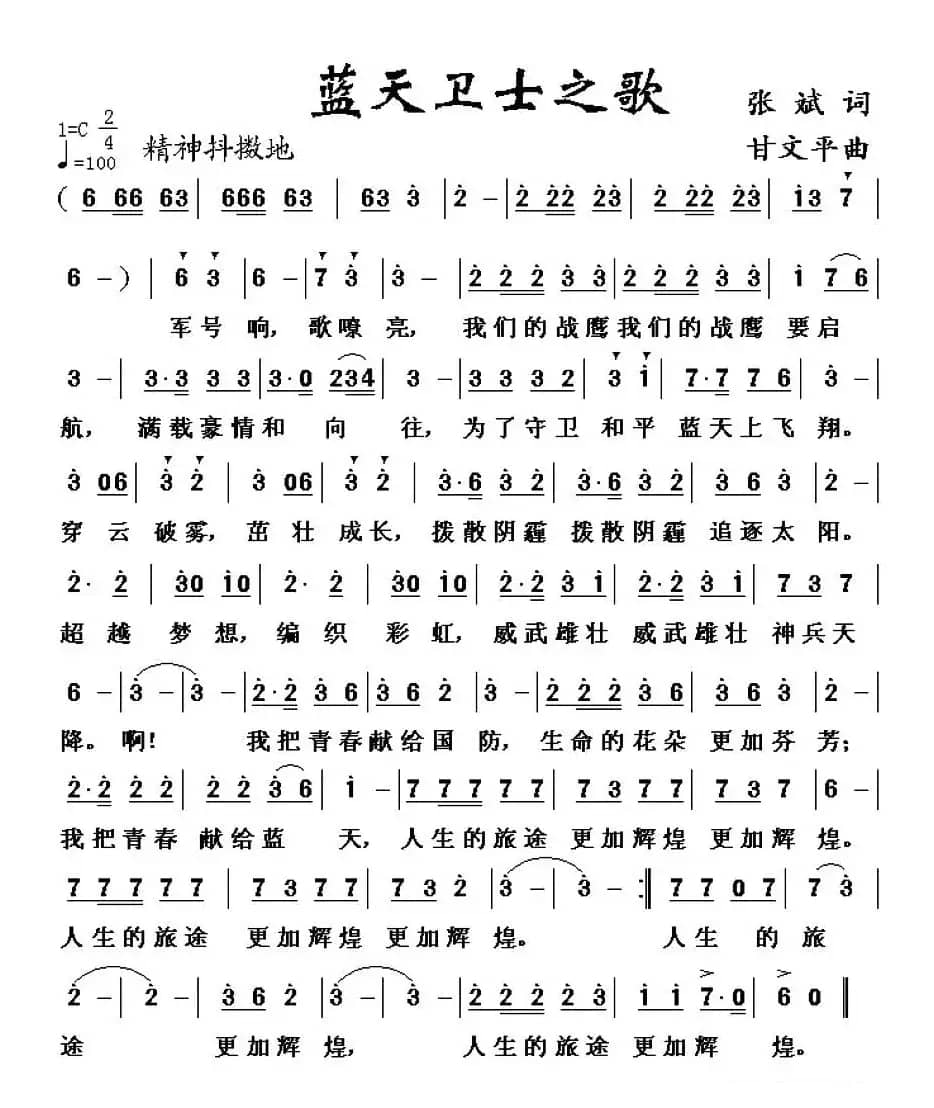 蓝天卫士之歌
张斌词
1=C 2/4
♩=100 精神抖擞地
甘文平曲
( 6 66 63 | 666 63 | 63 3̇ | 2̇ - | 2̇ 2̇2̇ 2̇3̇ | 2̇ 2̇2̇ 2̇3̇ | i̇3̇ 7 |
6 - ) | 6 3̇ | 6 - | 7 3̇ | 3̇ - | 2̇ 2̇ 2̇ 3̇ 3̇ | 2̇ 2̇ 2̇ 3̇ 3̇ | i̇ 7 6 |
军号 响, 歌嘹 亮, 我们的战鹰我们的战鹰 要启
3 - | 3·3 3 3 | 3·0 234 | 3 - | 3 3 3 2 | 3 i̇ | 7·7 7 6 | 3̇ - |
航, 满载豪情和 向 往, 为了守卫 和平 蓝天上飞 翔。
3̇ 06 | 3̇ 2̇ | 3̇ 06 | 3̇ 2̇ | 3̇·6 3̇ 2̇ | 3̇·6 3̇ 2̇ | 3̇ 6 3̇ | 2̇ - |
穿 云 破雾, 茁 壮 成长, 拨散阴霾 拨散阴霾 追逐太 阳。
2̇· 2̇ | 3̇0 i̇0 | 2̇· 2̇ | 3̇0 i̇0 | 2̇·2̇ 3̇ i̇ | 2̇·2̇ 3̇ i̇ | 7 3 7 |
超 越 梦 想, 编 织 彩 虹, 威武雄壮 威武雄壮 神兵天
6 - | 3̇ - | 3̇ - | 2̇·2̇ 3̇ 6 | 3̇ 6 2̇ | 3̇ - | 2̇ 2̇ 2̇ 3̇ 6 | 3̇ 6 3̇ | 2̇ - |
降。啊! 我把青春献给国 防, 生命的花朵 更加芬 芳;
2̇·2̇ 2̇ 2̇ | 2̇ 2̇ 3̇ 6 | i̇ - | 7 7 7 7 7 | 7 3 7 7 | 7 3 7 | 6 - |
我把青春 献给蓝 天, 人生的旅途 更加辉煌 更加辉 煌。
7 7 7 7 7 | 7 3 7 7 | 7 3 2̇ | 3̇ - | 3̇ - :‖ 7 7 0 7 | 7 3̇ |
人生的旅途 更加辉煌 更加辉 煌。 人生 的 旅
2̇ - | 2̇ - | 3̇ 6 2̇ | 3̇ - | 3̇ - | 2̇ 2̇ 2̇ 2̇ 3̇ | i̇ i̇ 7·0 | 6 0 ‖
途 更加辉 煌, 人生的旅途 更加辉 煌。